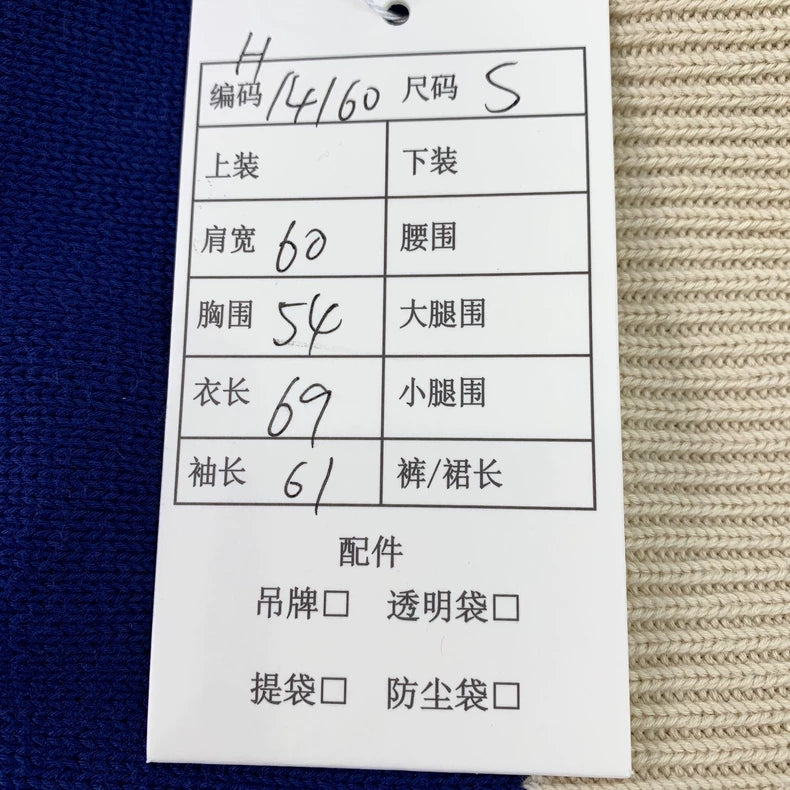 H
编码 14160 尺码 S
上装 下装
肩宽 60 腰围
胸围 54 大腿围
衣长 69 小腿围
袖长 61 裤/裙长
配件
吊牌□ 透明袋□
提袋□ 防尘袋□